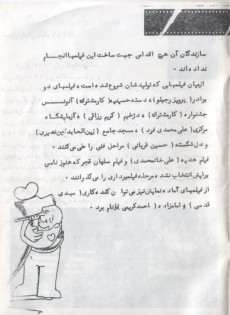 سازندگان آن هیچ اقدامی جهت ساخت این فیلمها انجام
نداده‌اند.
ازمیان فیلمهایی که تولیدشان شروع شده است، فیلمهای دو
برادر (پرویز رجبلو)، دسته حسینیه (کار مشترک) آتونس
جشنواره (کار مشترک)، دژخیم (کریم رزاقی)، آزمایشگاه
مرکزی (علی محمدی فرد)، مسجد جامع (زین العابدین نصیری)
و دل شکسته (حسین قربانی) مراحل فنی را طی می‌کنند.
فیلم هدیه (علی خانمحمدی) و فیلم سلهان قجر که هنوز نامی
برایش انتخاب نشده، مرحله فیلمبرداری را می‌گذرانند.
از فیلمهای آماده نمایش نیز می‌توان کنده‌کاری (مهدی
قدمی) و امامزاده (احمد کریمی) را نام برد.